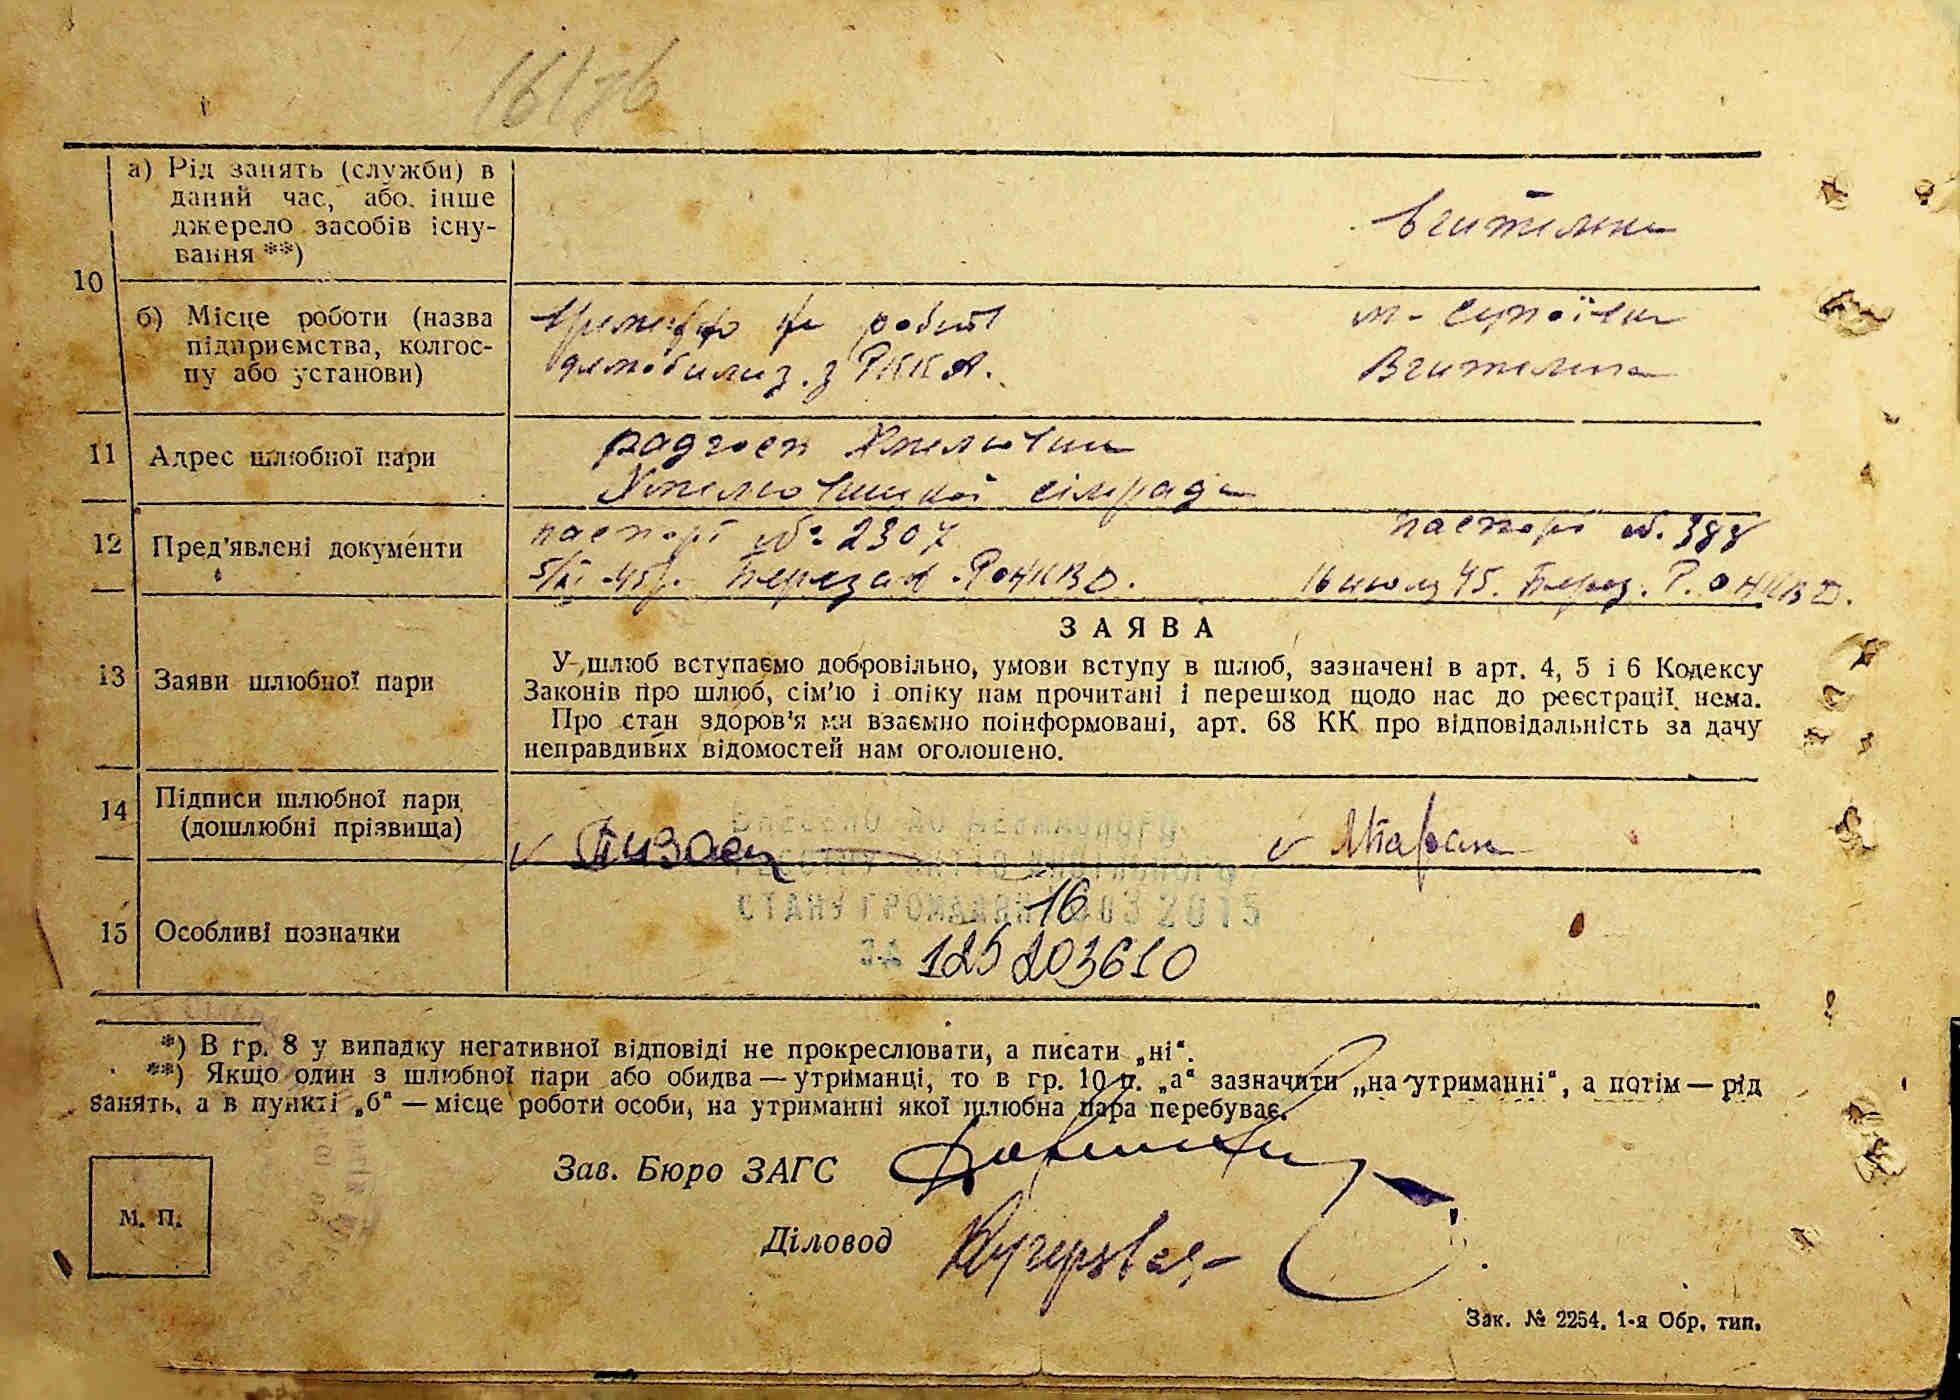 а) Рід занять (служби) в
даний час, або інше
джерело засобів існу-
вання **)
вчителька
10
б) Місце роботи (назва
підприємства, колгос-
пу або установи)
робит
демобилиз. з РККА.
Вчителька
11 Адрес шлюбної пари
радгосп
сільради
12 Пред'явлені документи
паспорт № 2307
5/XI-45р. Березан. РОНКВД.
паспорт №. 388
16 июля 45. Берез. Р.ОНКВД.
13 Заяви шлюбної пари
ЗАЯВА
У шлюб вступаємо добровільно, умови вступу в шлюб, зазначені в арт. 4, 5 і 6 Кодексу
Законів про шлюб, сім'ю і опіку нам прочитані і перешкод щодо нас до реєстрації нема.
Про стан здоров'я ми взаємно поінформовані, арт. 68 КК про відповідальність за дачу
неправдивих відомостей нам оголошено.
14 Підписи шлюбної пари
(дошлюбні прізвища)
ВНЕСЕНО ДО ДЕРЖАВНОГО
РЕЄСТРУ АКТІВ ЦИВІЛЬНОГО
СТАНУ ГРОМАДЯН 16 03 2015
ЗА 125203610
15 Особливі позначки
*) В гр. 8 у випадку негативної відповіді не прокреслювати, а писати „ні“.
**) Якщо один з шлюбної пари або обидва — утриманці, то в гр. 10 п. „а“ зазначити „на утриманні“, а потім — рід
занять, а в пункті „б“ — місце роботи особи, на утриманні якої шлюбна пара перебуває.
Зав. Бюро ЗАГС
Діловод
М. П.
Зак. № 2254. 1-я Обр. тип.